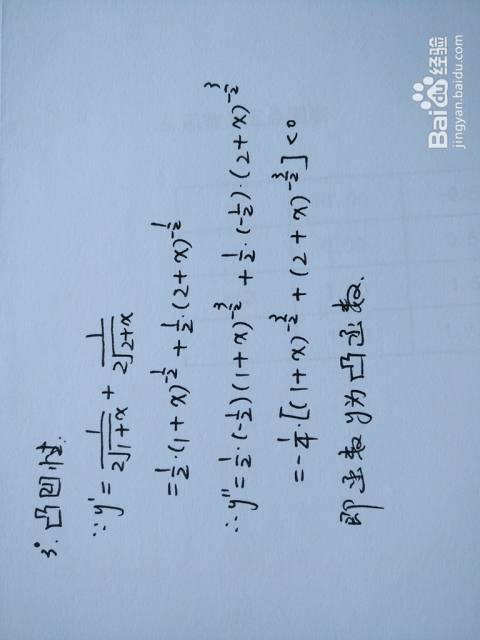 3°. 凸凹性.
∵y' = 1/(2√(1+x)) + 1/(2√(2+x))
= 1/2·(1+x)^(-1/2) + 1/2·(2+x)^(-1/2)
∴y'' = 1/2·(-1/2)(1+x)^(-3/2) + 1/2·(-1/2)·(2+x)^(-3/2)
= -1/4·[(1+x)^(-3/2) + (2+x)^(-3/2)] <0
即函数y为凸函数.
Baidu经验
jingyan.baidu.com